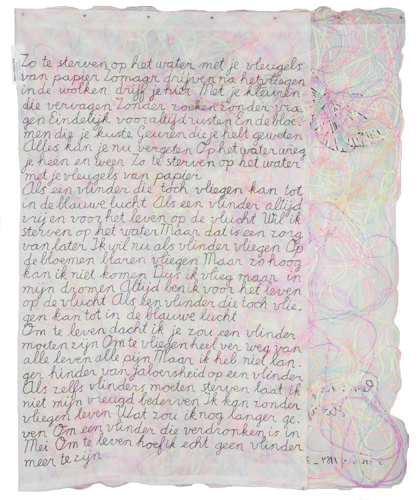 Zo te sterven op het water met je vleugels
van papier Zomaar drijven na het vliegen
in de wolken drijf je hier Met je kleuren
die vervagen Zonder zoeken zonder vra
gen Eindelijk voor altijd rusten En de bloe-
men die je kuste Geuren die je hebt geweten
Alles kan je nu vergeten Op het water wieg
je heen en weer Zo te sterven op het water
met je vleugels van papier
Als een vlinder die toch vliegen kan tot
in de blauwe lucht Als een vlinder altijd
vrij en voor het leven op de vlucht Wil ik
sterven op het water Maar dat is een zorg
van later Ik wil nu als vlinder vliegen Op
de bloemen blaren wiegen Maar zo hoog
kan ik niet komen Dus ik vlieg maar in
mijn dromen Altijd ben ik voor het leven
op de vlucht Als een vlinder die toch vlie-
gen kan tot in de blauwe lucht
Om te leven dacht ik je zou een vlinder
moeten zijn Om te vliegen heel ver weg van
alle leven alle pijn Maar ik heb niet lan-
ger hinder van jaloersheid op een vlinder
Als zelfs vlinders moeten sterven laat ik
niet mijn vreugd bederven Ik kan zonder
vliegen leven Wat zou ik nog langer ge-
ven Om een vlinder die verdronken is in
Mei Om te leven hoef ik echt geen vlinder
meer te zijn